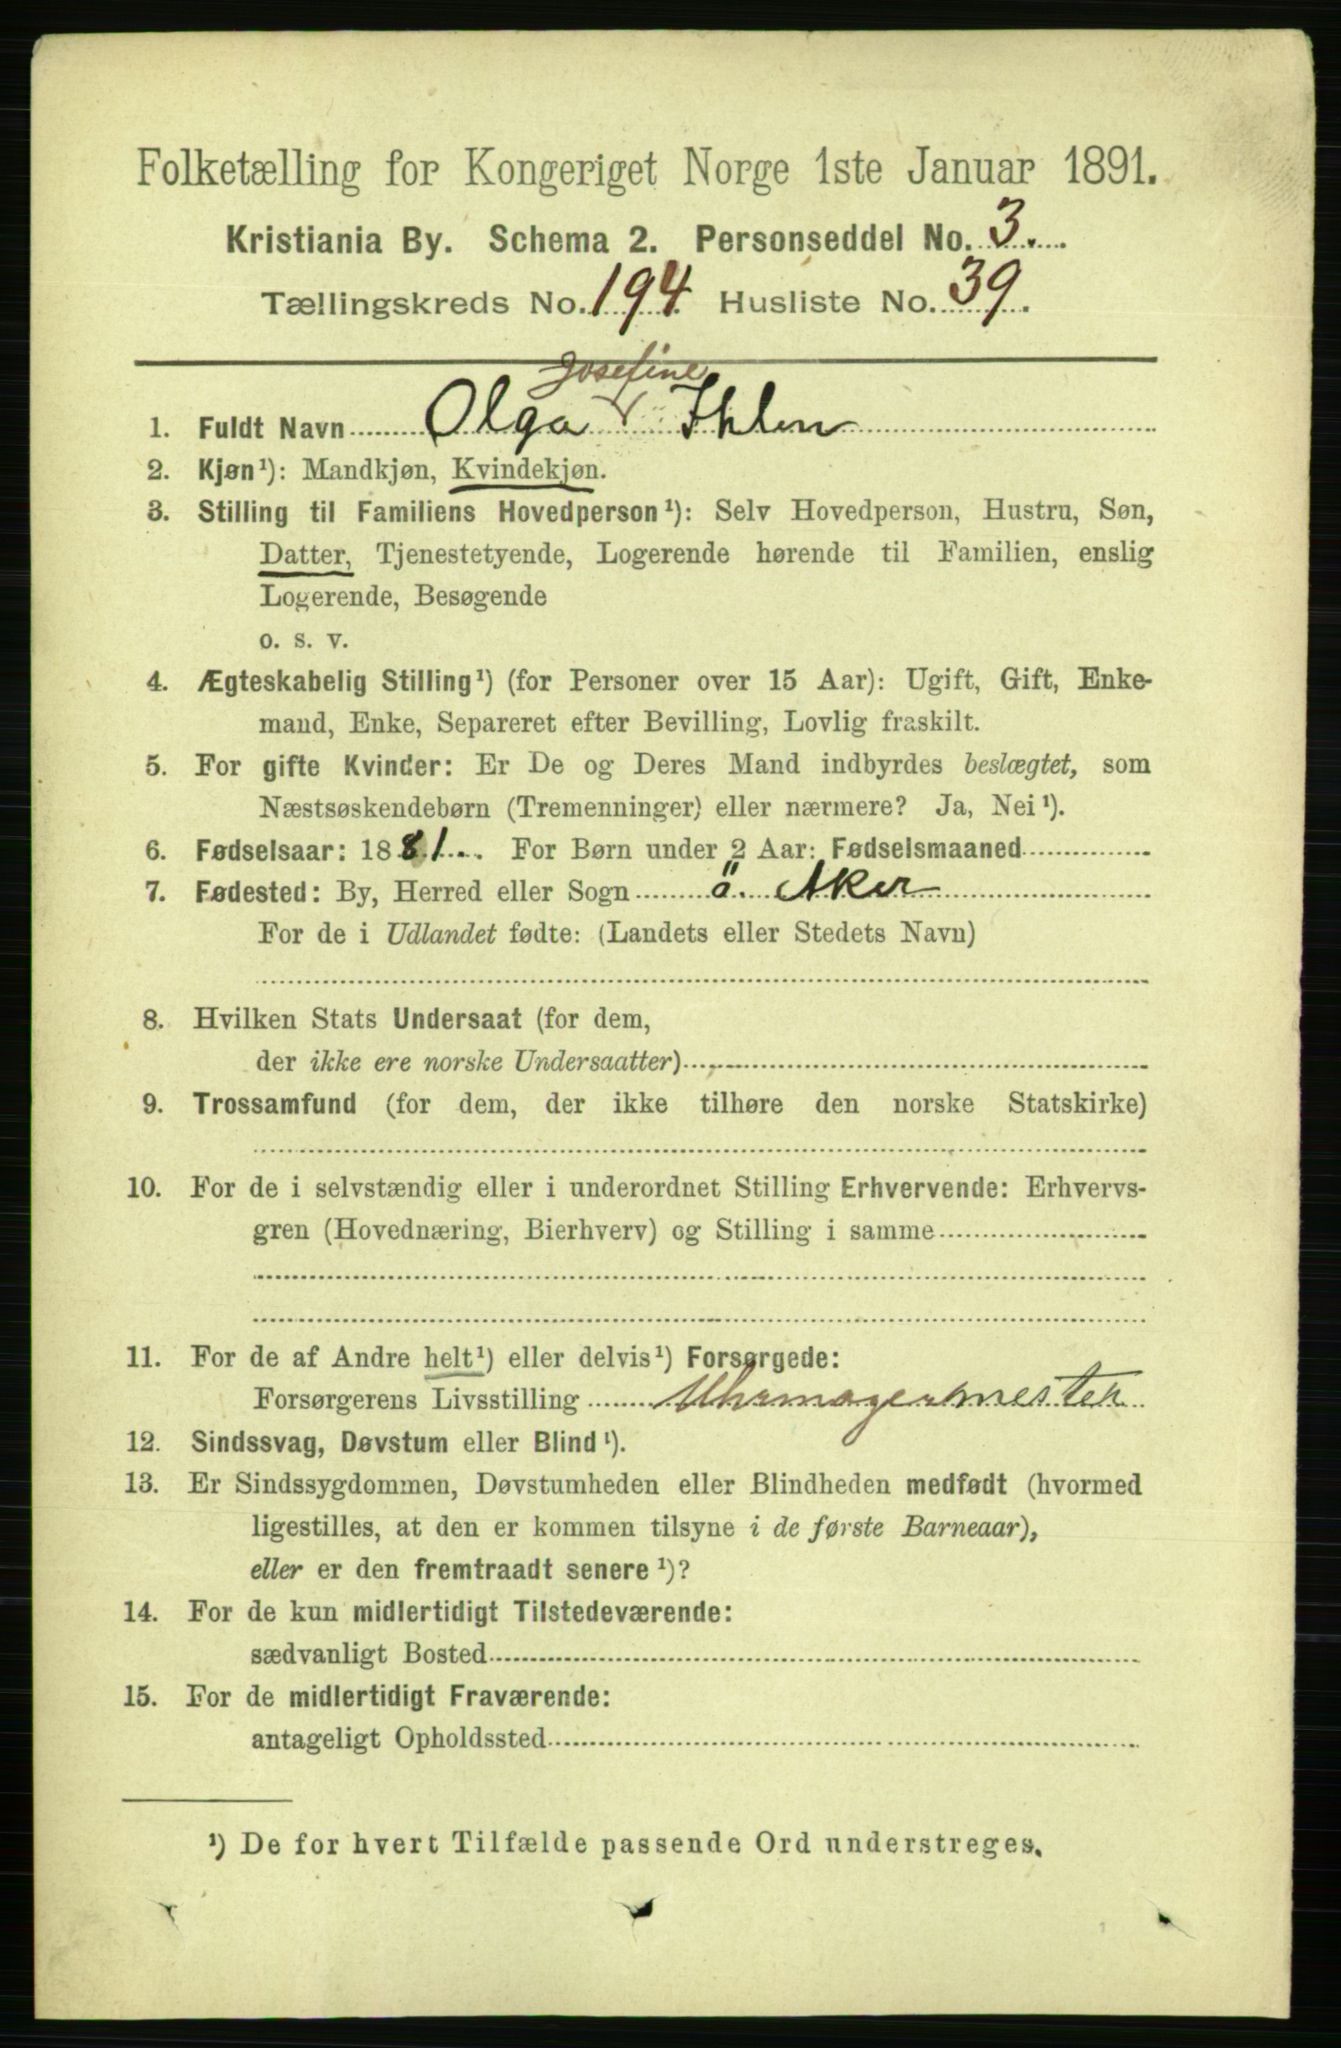 Folketælling for Kongeriget Norge 1ste Januar 1891.
Kristiania By. Schema 2. Personseddel No. 3.
Tællingskreds No. 194 Husliste No. 39.
Josefine
1. Fuldt Navn Olga √ Ihlen
2. Kjøn¹): Mandkjøn, Kvindekjøn.
3. Stilling til Familiens Hovedperson¹): Selv Hovedperson, Hustru, Søn,
Datter, Tjenestetyende, Logerende hørende til Familien, enslig
Logerende, Besøgende
o. s. v.
4. Ægteskabelig Stilling¹) (for Personer over 15 Aar): Ugift, Gift, Enke-
mand, Enke, Separeret efter Bevilling, Lovlig fraskilt.
5. For gifte Kvinder: Er De og Deres Mand indbyrdes beslægtet, som
Næstsøskendebørn (Tremenninger) eller nærmere? Ja, Nei¹).
6. Fødselsaar: 1881. For Børn under 2 Aar: Fødselsmaaned
7. Fødested: By, Herred eller Sogn ö. Aker
For de i Udlandet fødte: (Landets eller Stedets Navn)
8. Hvilken Stats Undersaat (for dem,
der ikke ere norske Undersaatter)
9. Trossamfund (for dem, der ikke tilhøre den norske Statskirke)
10. For de i selvstændig eller i underordnet Stilling Erhvervende: Erhvervs-
gren (Hovednæring, Bierhverv) og Stilling i samme
11. For de af Andre helt¹) eller delvis¹) Forsørgede:
Forsørgerens Livsstilling Uhrmagermester
12. Sindssvag, Døvstum eller Blind¹).
13. Er Sindssygdommen, Døvstumheden eller Blindheden medfødt (hvormed
ligestilles, at den er kommen tilsyne i de første Barneaar),
eller er den fremtraadt senere¹)?
14. For de kun midlertidigt Tilstedeværende:
sædvanligt Bosted
15. For de midlertidigt Fraværende:
antageligt Opholdssted
¹) De for hvert Tilfælde passende Ord understreges.